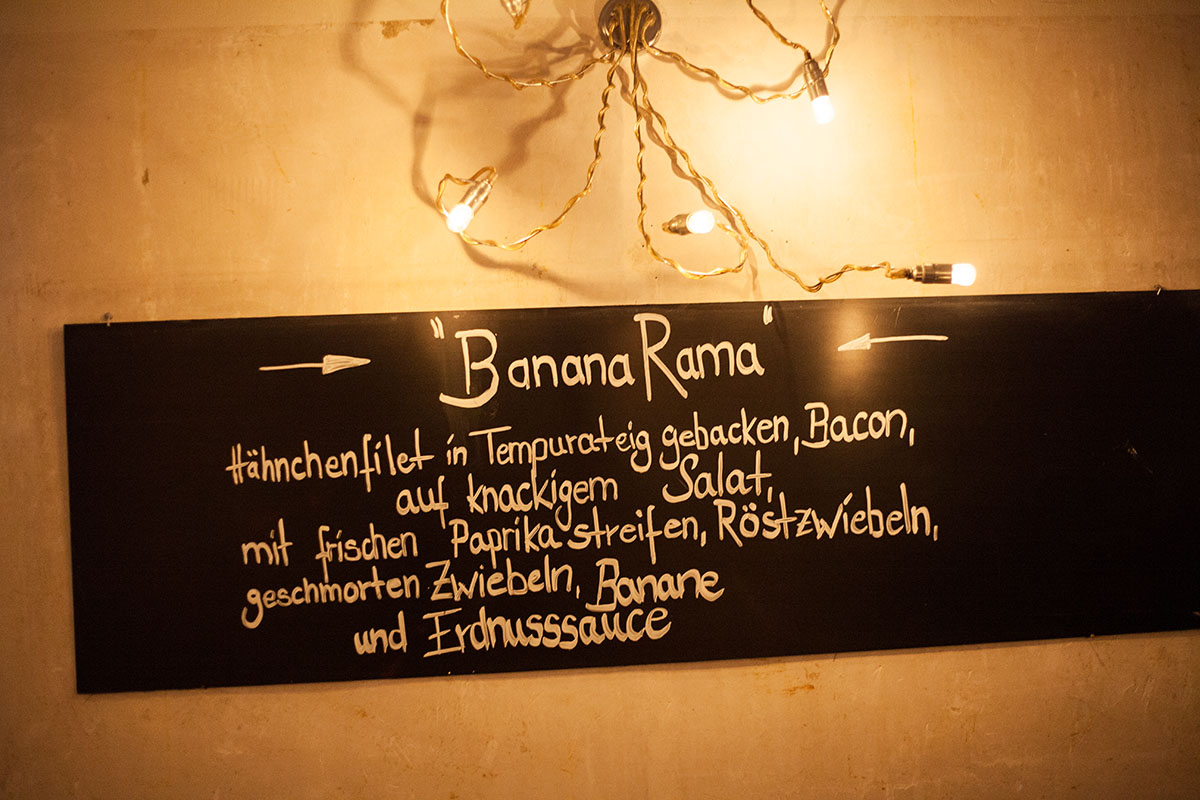 "BananaRama"
Hähnchenfilet in Tempurateig gebacken, Bacon,
auf knackigem Salat,
mit frischen Paprikastreifen, Röstzwiebeln,
geschmorten Zwiebeln, Banane
und Erdnusssauce